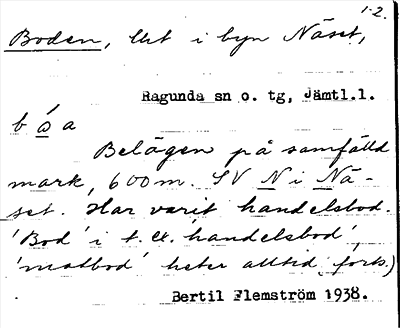 1-2.
Boden, lht i byn Näset,
Ragunda sn o. tg, Jämtl.l.
bóa
Belägen på samfälld
mark, 600m. SV N i Nä-
set. Har varit handelsbod.
'Bod' i t. ex. handelsbod',
'matbod' heter alltid
Bertil Flemström 1938.